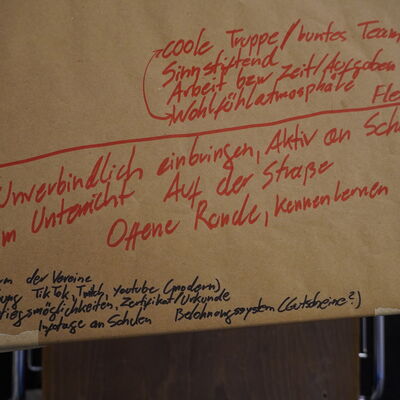 coole Truppe/buntes Team
Sinnstiftend
Arbeit bzw Zeit/Aufgaben
Wohlfühlatmosphäre Fle
Unverbindlich einbringen, Aktiv an Sch
m Unterricht Auf der Straße
Offene Runde, kennenlernen
der Vereine
TikTok, Twitch, Youtube (modern)
tiegsmöglichkeiten, Zertifikat/Urkunde
Infotage an Schulen Belohnungssystem (Gutscheine?)